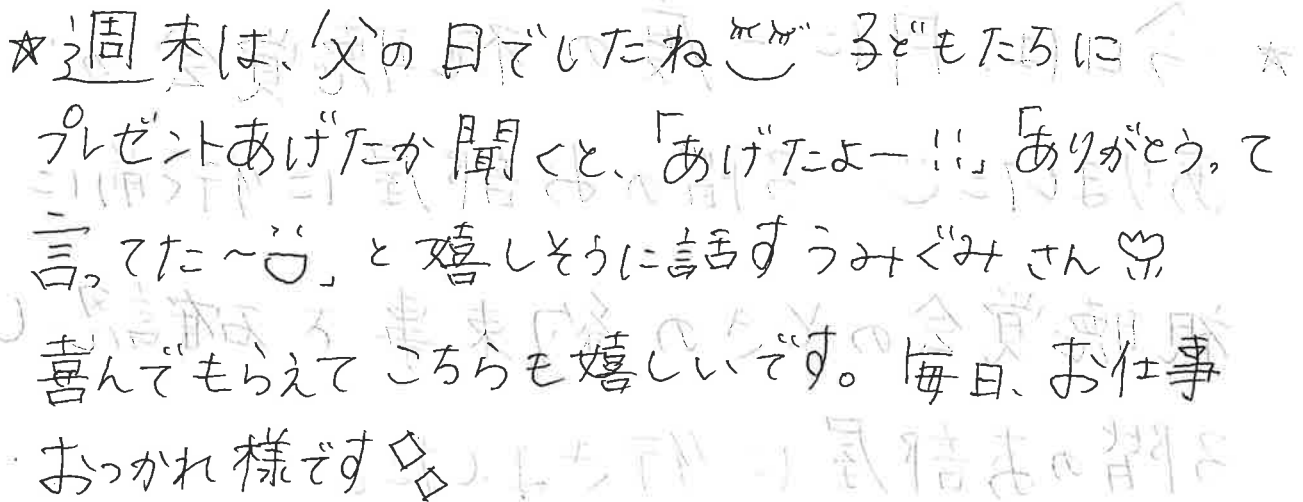 ☆週末は、父の日でしたね 子どもたちに
プレゼントあげたか聞くと、「あげたよー!!」「ありがとうって
言ってた〜」と嬉しそうに話すうみぐみさん
喜んでもらえてこちらも嬉しいです。毎日、お仕事
おつかれ様です